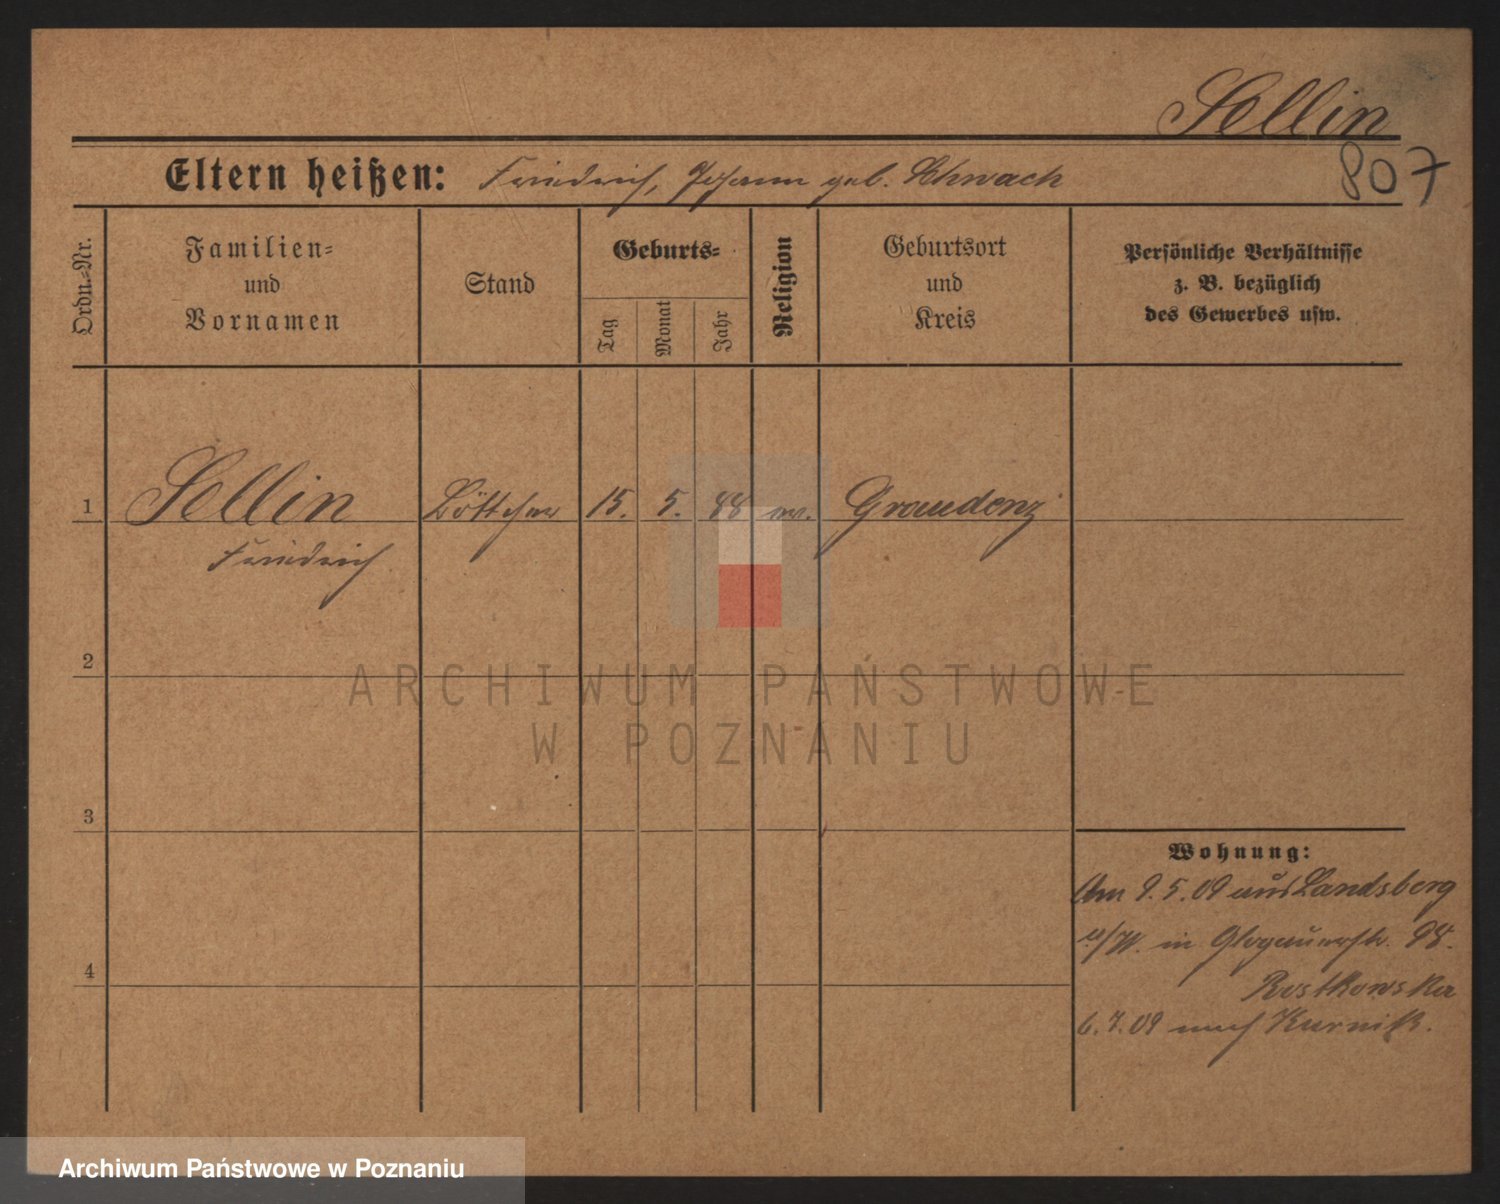 Sellin
807
Eltern heißen: Friedrich, Johann geb. Schwach
Ordn.-Nr.
Familien- und Vornamen
Stand
Geburts-
Tag
Monat
Jahr
Religion
Geburtsort und Kreis
Persönliche Verhältnisse
z. B. bezüglich
des Gewerbes usw.
1 Sellin Böttcher 15. 5. 88 ev. Graudenz
Friedrich
2
3
4
Wohnung:
Am 9.5.09 aus Landsberg
a/W. in Glogauerstr. 98.
Rostkowska
6.7.09 nach Kurnik.
ARCHIWUM PAŃSTWOWE
W POZNANIU
Archiwum Państwowe w Poznaniu